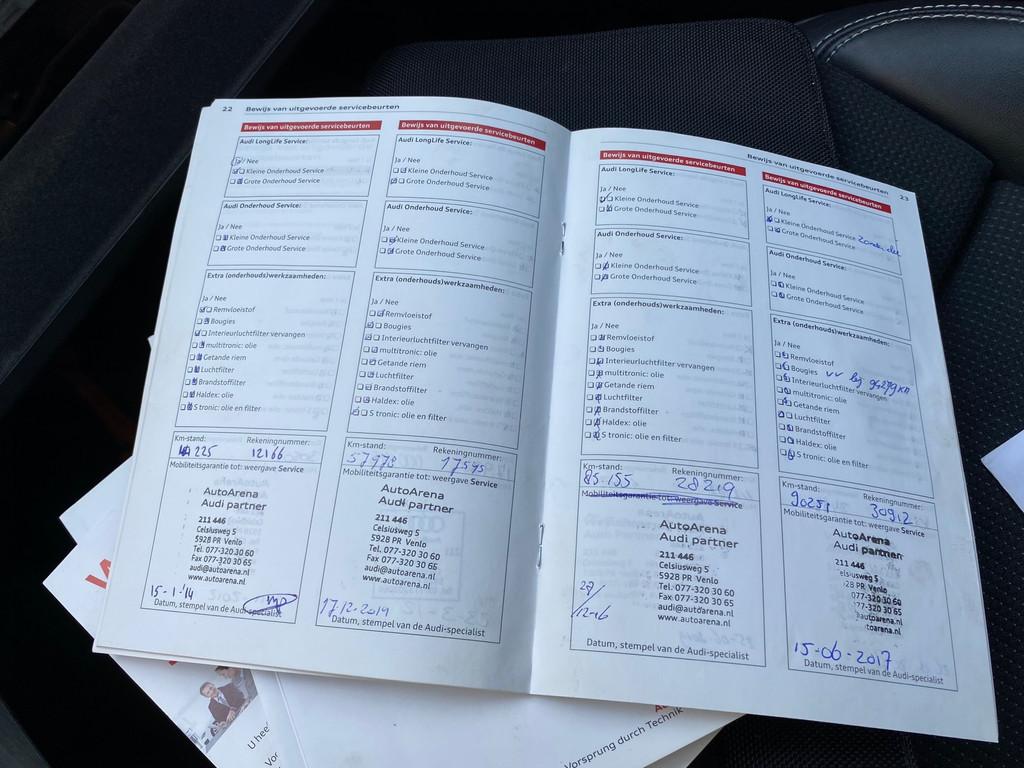 22 Bewijs van uitgevoerde servicebeurten
Bewijs van uitgevoerde servicebeurten
Audi LongLife Service:
Ja / Nee
Kleine Onderhoud Service
Grote Onderhoud Service
Audi Onderhoud Service:
Ja / Nee
Kleine Onderhoud Service
Grote Onderhoud Service
Extra (onderhouds)werkzaamheden:
Ja / Nee
Remvloeistof
Bougies
Interieurluchtfilter vervangen
multitronic: olie
Getande riem
Luchtfilter
Brandstoffilter
Haldex: olie
S tronic: olie en filter
Km-stand: Rekeningnummer:
225 12166
Mobiliteitsgarantie tot: weergave Service
AutoArena
Audi partner
211 446
Celsiusweg 5
5928 PR Venlo
Tel. 077-320 30 60
Fax 077-320 30 65
audi@autoarena.nl
www.autoarena.nl
15-1-'14
Datum, stempel van de Audi-specialist
Bewijs van uitgevoerde servicebeurten
Audi LongLife Service:
Ja / Nee
Kleine Onderhoud Service
Grote Onderhoud Service
Audi Onderhoud Service:
Ja / Nee
Kleine Onderhoud Service
Grote Onderhoud Service
Extra (onderhouds)werkzaamheden:
Ja / Nee
Remvloeistof
Bougies
Interieurluchtfilter vervangen
multitronic: olie
Getande riem
Luchtfilter
Brandstoffilter
Haldex: olie
S tronic: olie en filter
Km-stand: Rekeningnummer:
57978 17595
Mobiliteitsgarantie tot: weergave Service
AutoArena
Audi partner
211 446
Celsiusweg 5
5928 PR Venlo
Tel. 077-320 30 60
Fax 077-320 30 65
audi@autoarena.nl
www.autoarena.nl
17-12-2014
Datum, stempel van de Audi-specialist
Bewijs van uitgevoerde servicebeurten 23
Bewijs van uitgevoerde servicebeurten
Audi LongLife Service:
Ja / Nee
Kleine Onderhoud Service
Grote Onderhoud Service
Audi Onderhoud Service:
Ja / Nee
Kleine Onderhoud Service
Grote Onderhoud Service
Extra (onderhouds)werkzaamheden:
Ja / Nee
Remvloeistof
Bougies
Interieurluchtfilter vervangen
multitronic: olie
Getande riem
Luchtfilter
Brandstoffilter
Haldex: olie
S tronic: olie en filter
Km-stand: Rekeningnummer:
85.155 28219
Mobiliteitsgarantie tot: weergave Service
AutoArena
Audi partner
211 446
Celsiusweg 5
5928 PR Venlo
Tel. 077-320 30 60
Fax 077-320 30 65
audi@autoarena.nl
www.autoarena.nl
/12-16
Datum, stempel van de Audi-specialist
Bewijs van uitgevoerde servicebeurten
Audi LongLife Service:
Ja / Nee
Kleine Onderhoud Service
Grote Onderhoud Service
Audi Onderhoud Service:
Ja / Nee
Kleine Onderhoud Service
Grote Onderhoud Service
Extra (onderhouds)werkzaamheden:
Ja / Nee
Remvloeistof
Bougies
Interieurluchtfilter vervangen
multitronic: olie
Getande riem
Luchtfilter
Brandstoffilter
Haldex: olie
S tronic: olie en filter
Km-stand: Rekeningnummer:
90251 30912
Mobiliteitsgarantie tot: weergave Service
AutoArena
Audi partner
211 446
elsiusweg 5
28 PR Venlo
077-320 30 60
77-320 30 65
autoarena.nl
toarena.nl
15-06-2017
Datum, stempel van de Audi-specialist
U hee
Vor
Vorsprung durch Technik